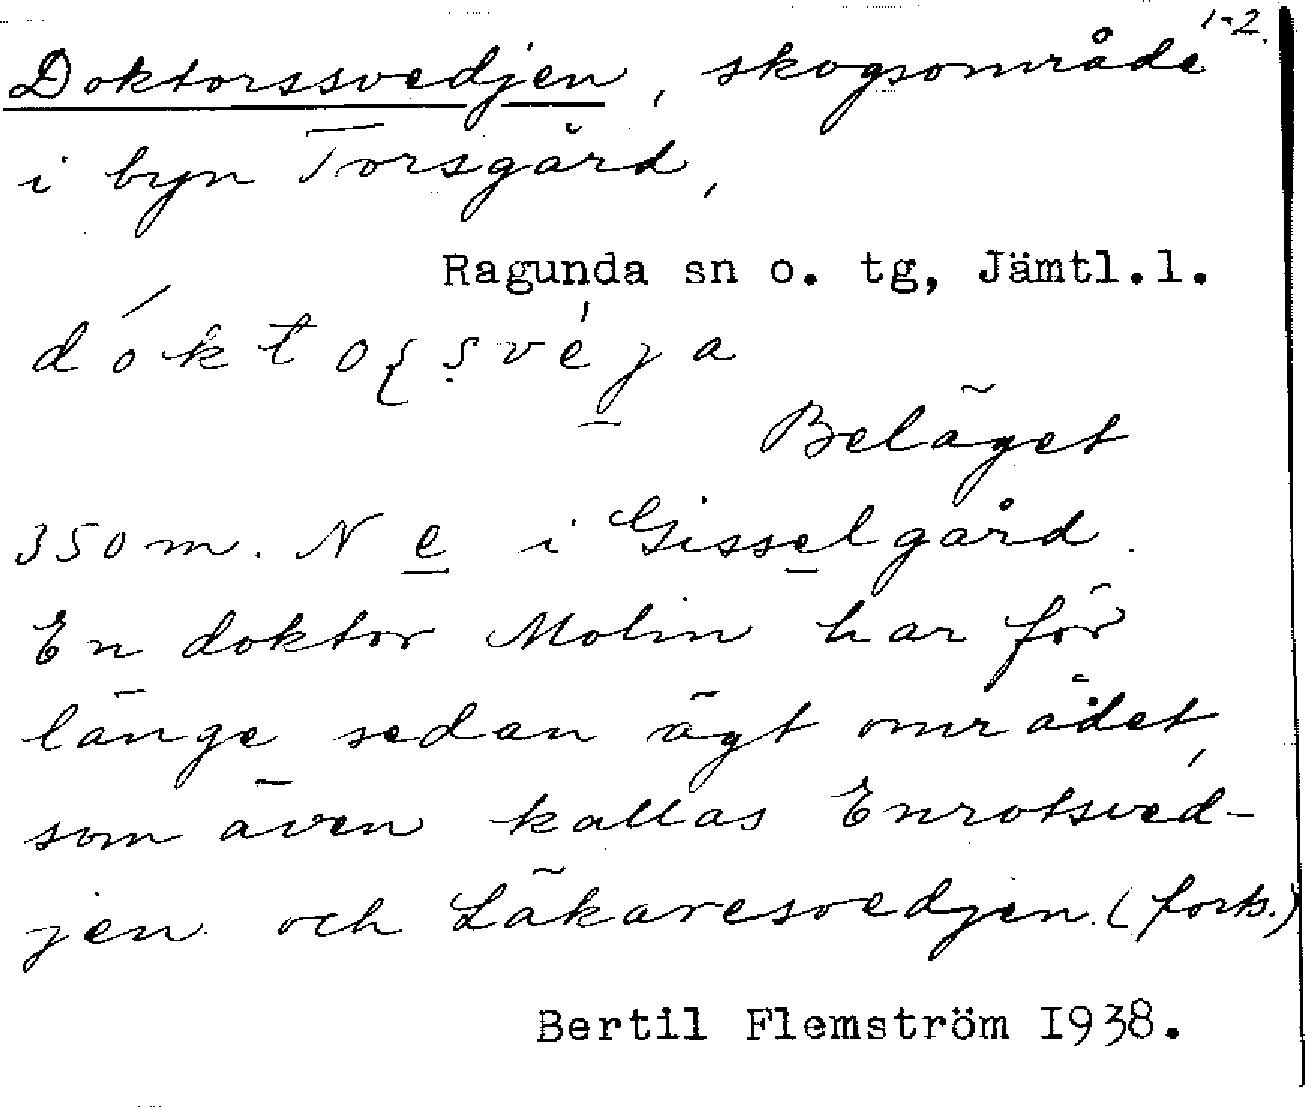 1-2.
Doktorssvedjen, skogsområde
i byn Torsgård,
Ragunda sn o. tg, Jämtl.l.
Beläget
350 m. N e i Gisselgård.
En doktor Molin har för
länge sedan ägt området,
som även kallas Enrotsved-
jen och Läkaresvedjen. (forts.)
Bertil Flemström 1938.